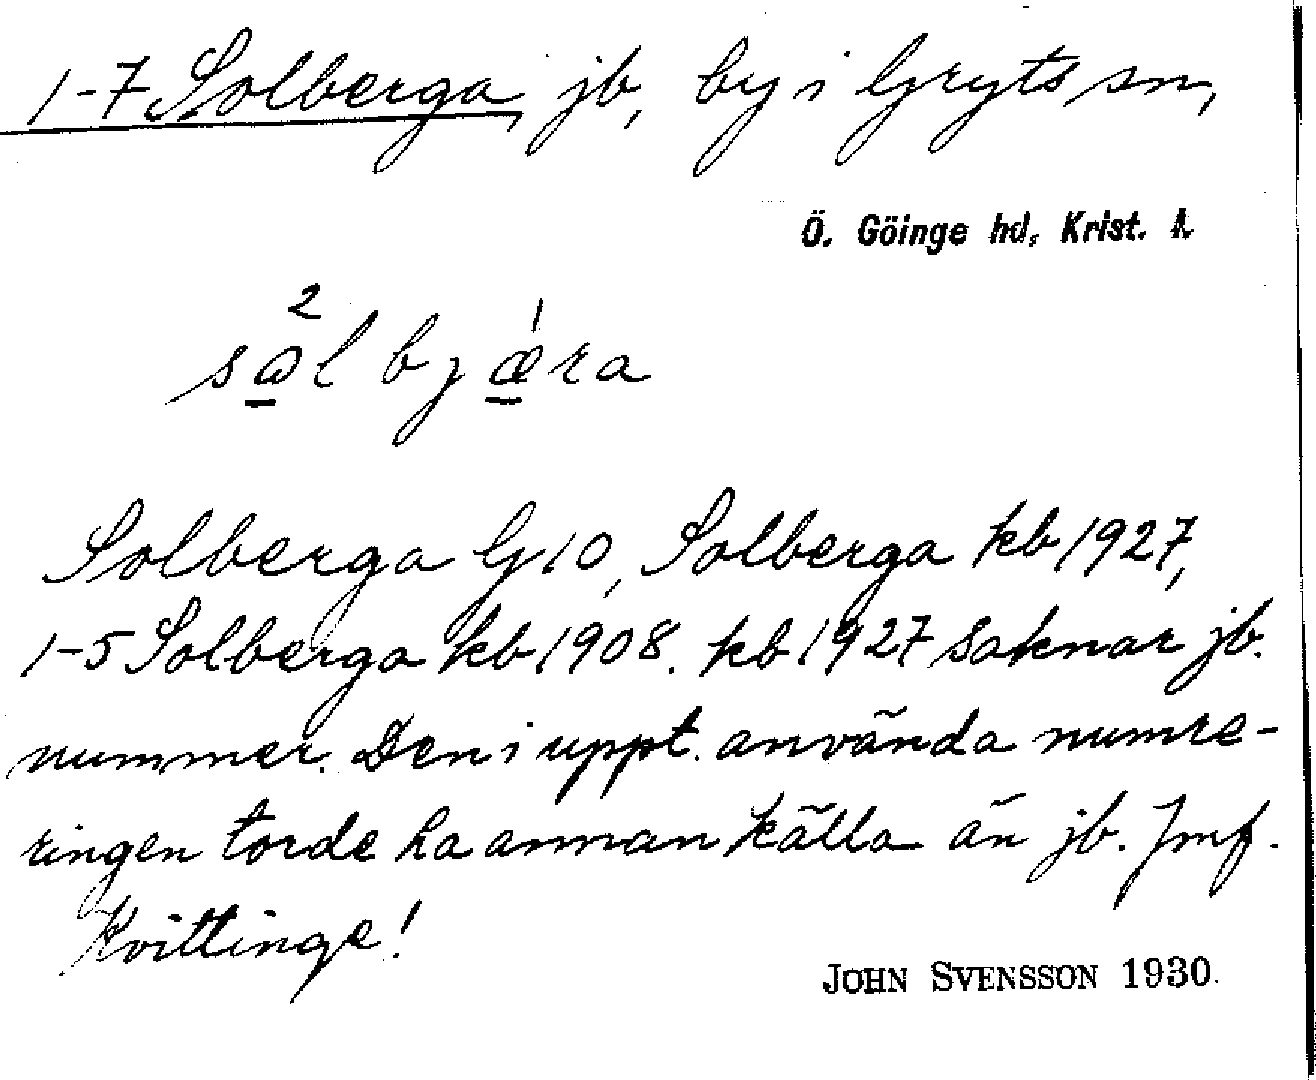 1-7 Solberga, jb, by i Gryts sn,
Ö. Göinge hd, Krist. l.
2 1
sɷl bjæra
Solberga G 10, Solberga kb 1927,
1-5 Solberga kb 1908. kb 1927 saknar jb.
nummer. Den i uppt. använda numre-
ringen torde ha annan källa än jb. Jmf.
Kvittinge!
JOHN SVENSSON 1930.